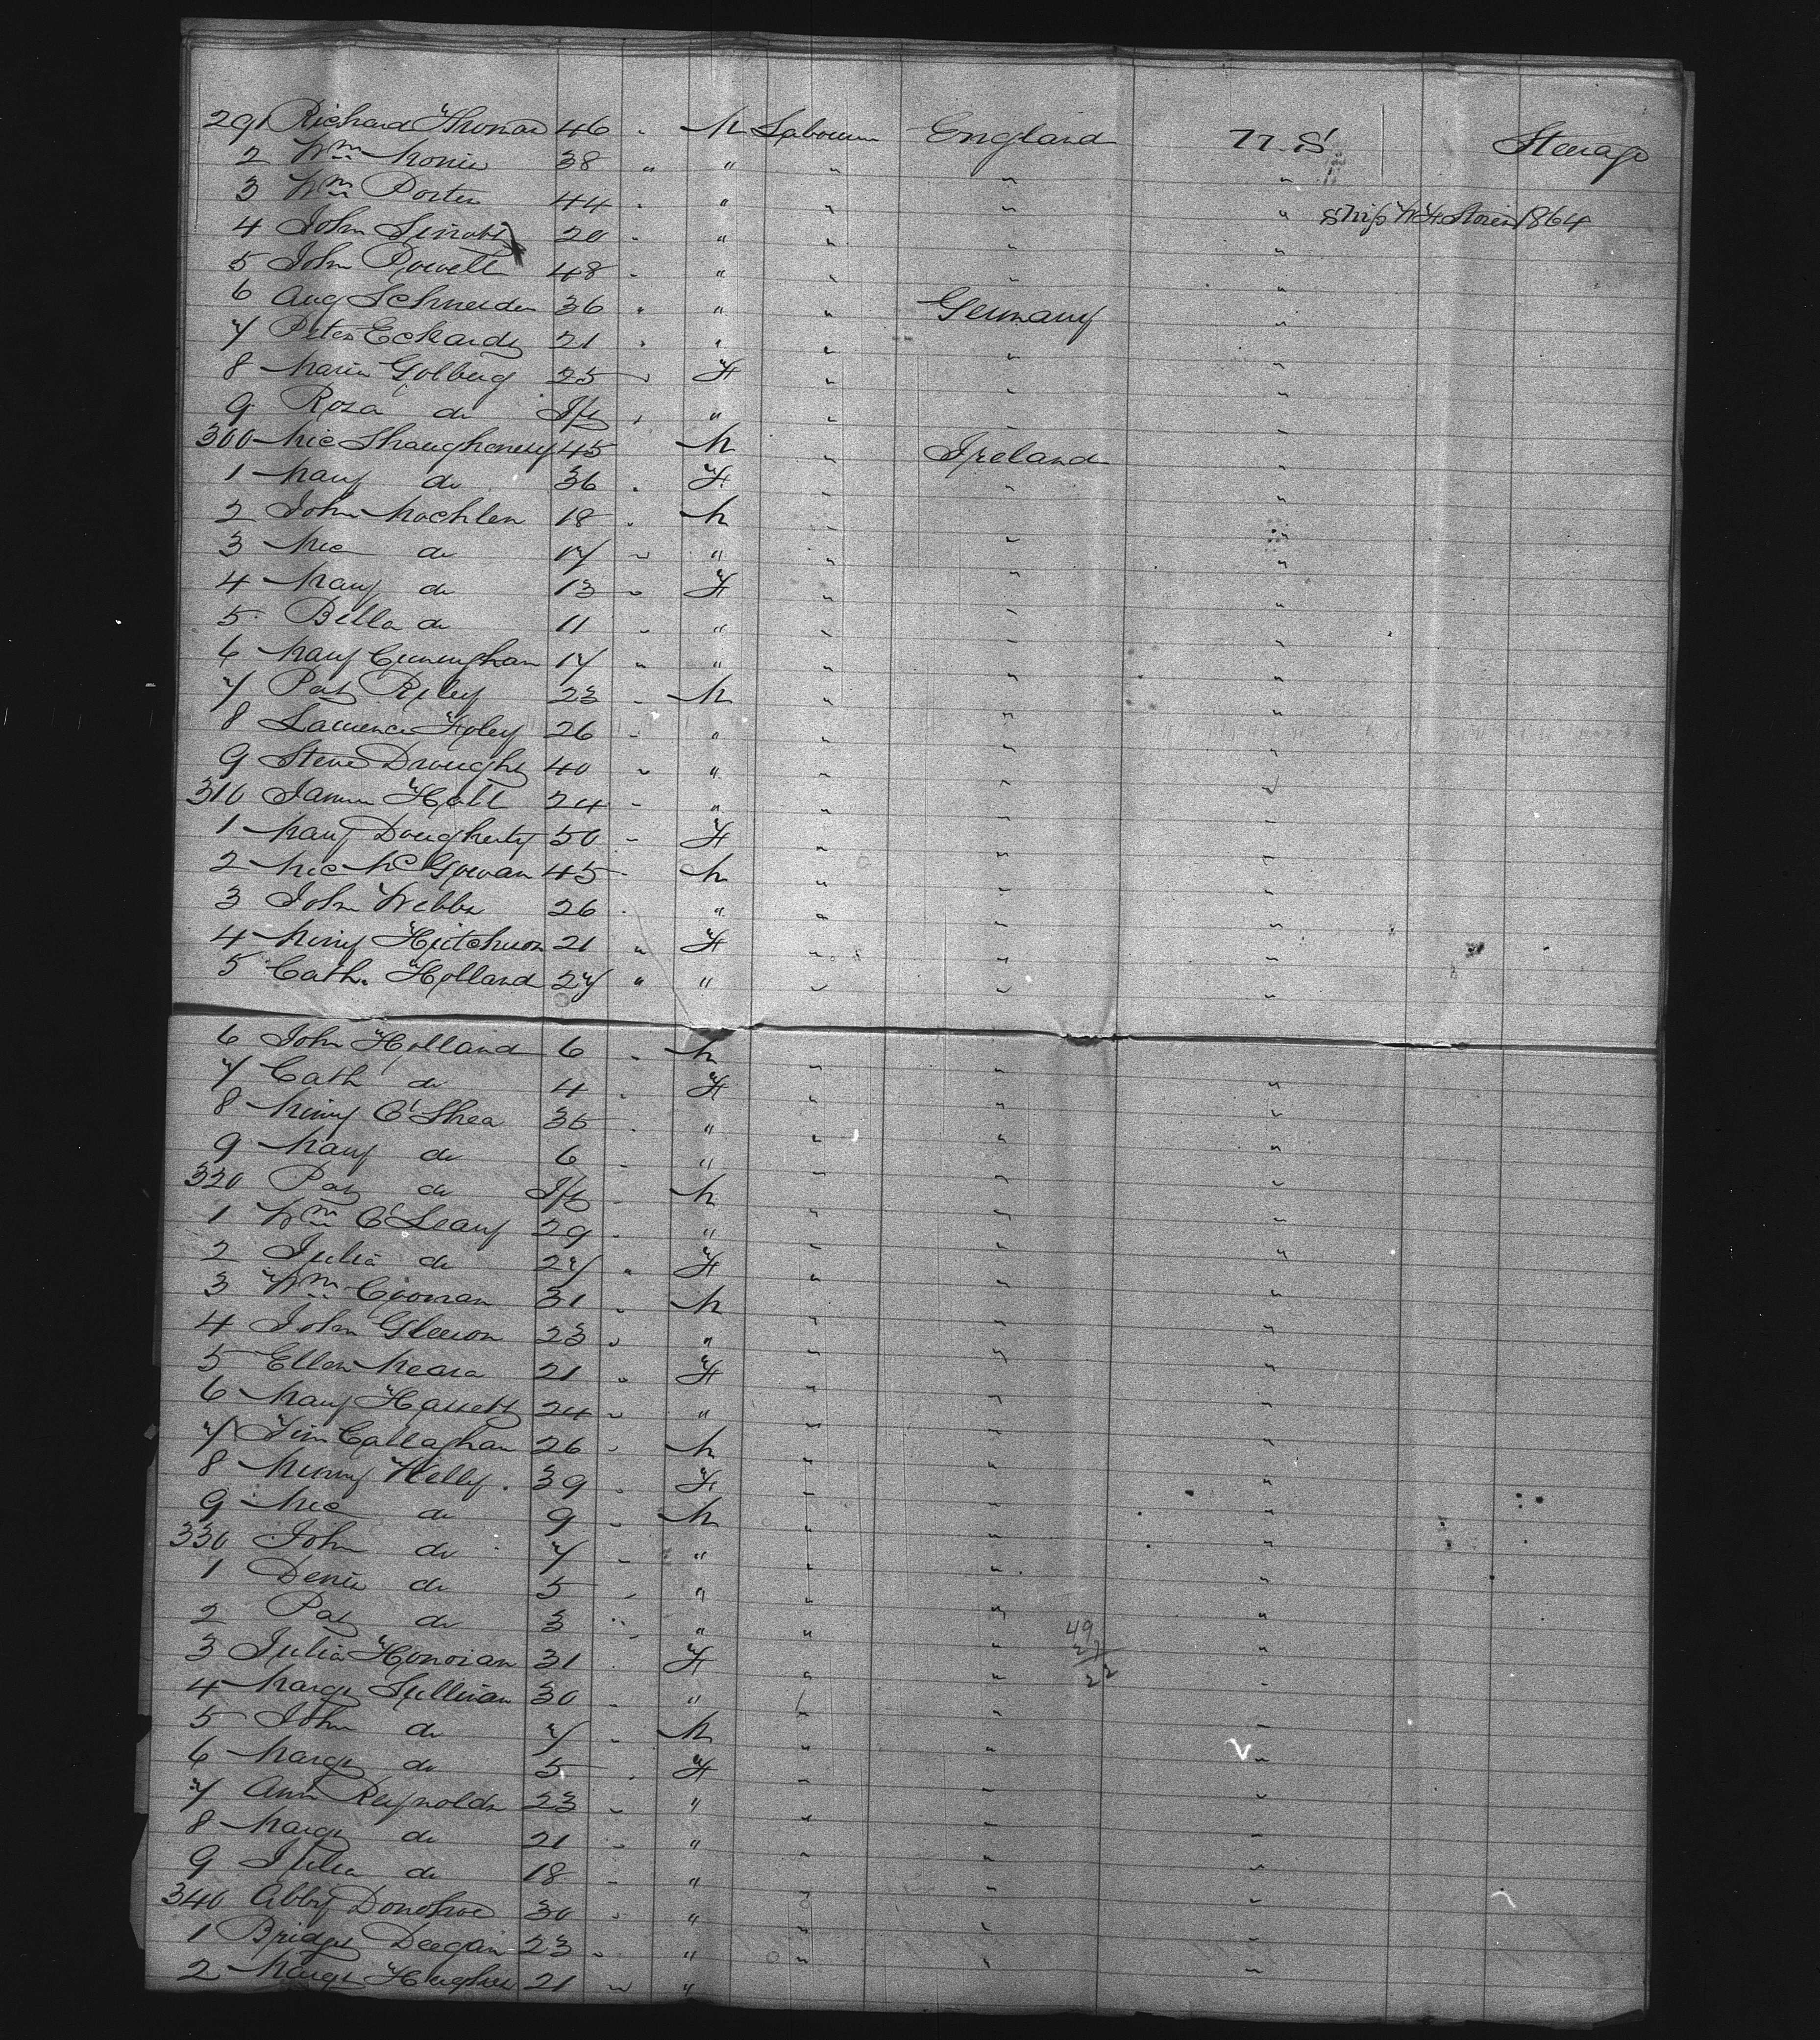 291 Richard Thomas 46 " M Labourer England U.S. Steerage
2 Wm 38 " " " " "
3 Wm Porter 44 " " " " " Ship 1864
4 John Sinott 20 " " " " "
5 John Powell 48 " " " " "
6 Aug Schneider 36 " " " Germany "
7 Peter Eckardt 21 " " " " "
8 Maria Golberg 25 " F " " "
9 Rosa do Inft " " " " "
300 Mic Shaughnessy 45 M " Ireland "
1 Mary do 36 " F " " "
2 John 18 " M " " "
3 Mic do 17 " " " " "
4 Mary do 13 " F " " "
5 Bella do 11 " " " " "
6 Mary Cunningham 17 " " " " "
7 Pat Riley 23 " M " " "
8 Lawrence Foley 26 " " " " "
9 Steve Drought 40 " " " " "
310 James Holt 24 " " " " "
1 Mary Dougherty 50 " F " " "
2 Mic McGowan 45 " M " " "
3 John Webbs 26 " " " " "
4 Minny Hutchison 21 " F " " "
5 Cath. Holland 27 " " " " "
6 John Holland 6 " M " " "
7 Cath do 4 " F " " "
8 Minny O'Shea 35 " " " " "
9 Mary do 6 " " " " "
320 Pat do Inft " M " " "
1 Wm O'Leary 29 " " " " "
2 Julia do 27 " F " " "
3 Wm Coonan 31 " M " " "
4 John Gleeson 23 " " " " "
5 Ellen Meara 21 " F " " "
6 Mary Hassett 24 " " " " "
7 Tim Callaghan 26 " M " " "
8 Minny Kelly 39 " F " " "
9 Mic do 9 " M " " "
330 John do 7 " " " " "
1 Denis do 5 " " " " "
2 Pat do 3 " " " " "
3 Julia Honoran 31 " F " " "
4 Margt Sullivan 30 " " " " "
5 John do 7 " M " " "
6 Margt do 5 " F " " "
7 Ann Reynolds 23 " " " " "
8 Margt do 21 " " " " "
9 Julia do 18 " " " " "
340 Abby Donohoe 30 " " " " "
1 Bridget Deegan 23 " " " " "
2 Margt Hughes 21 " "